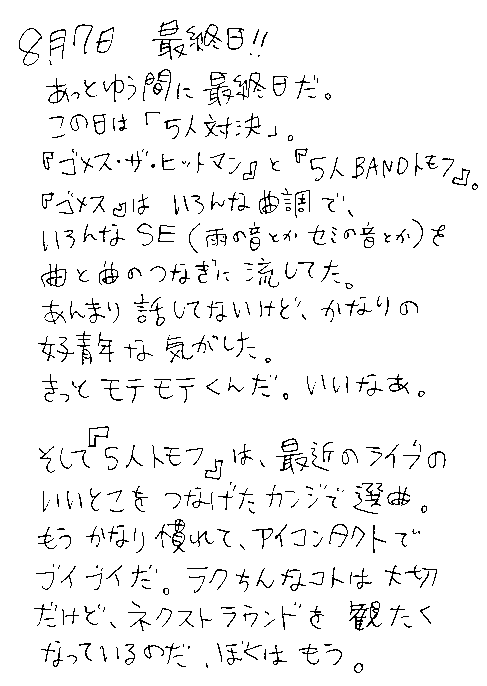 8月7日 最終日!!
あっとゆう間に最終日だ。
この日は「5人対決」。
『ゴメス・ザ・ヒットマン』と『5人BANDトモフ』。
『ゴメス』は いろんな曲調で、
いろんなSE(雨の音とか セミの音とか)を
曲と曲のつなぎに流してた。
あんまり話してないけど、かなりの
好青年な気がした。
きっとモテモテくんだ。いいなぁ。
そして『5人トモフ』は、最近のライブの
いいとこをつなげたカンジで選曲。
もうかなり慣れて、アイコンタクトで
ブイブイだ。ラクちんなコトは大切
だけど、ネクストラウンドを観たく
なっているのだ、ぼくはもう。